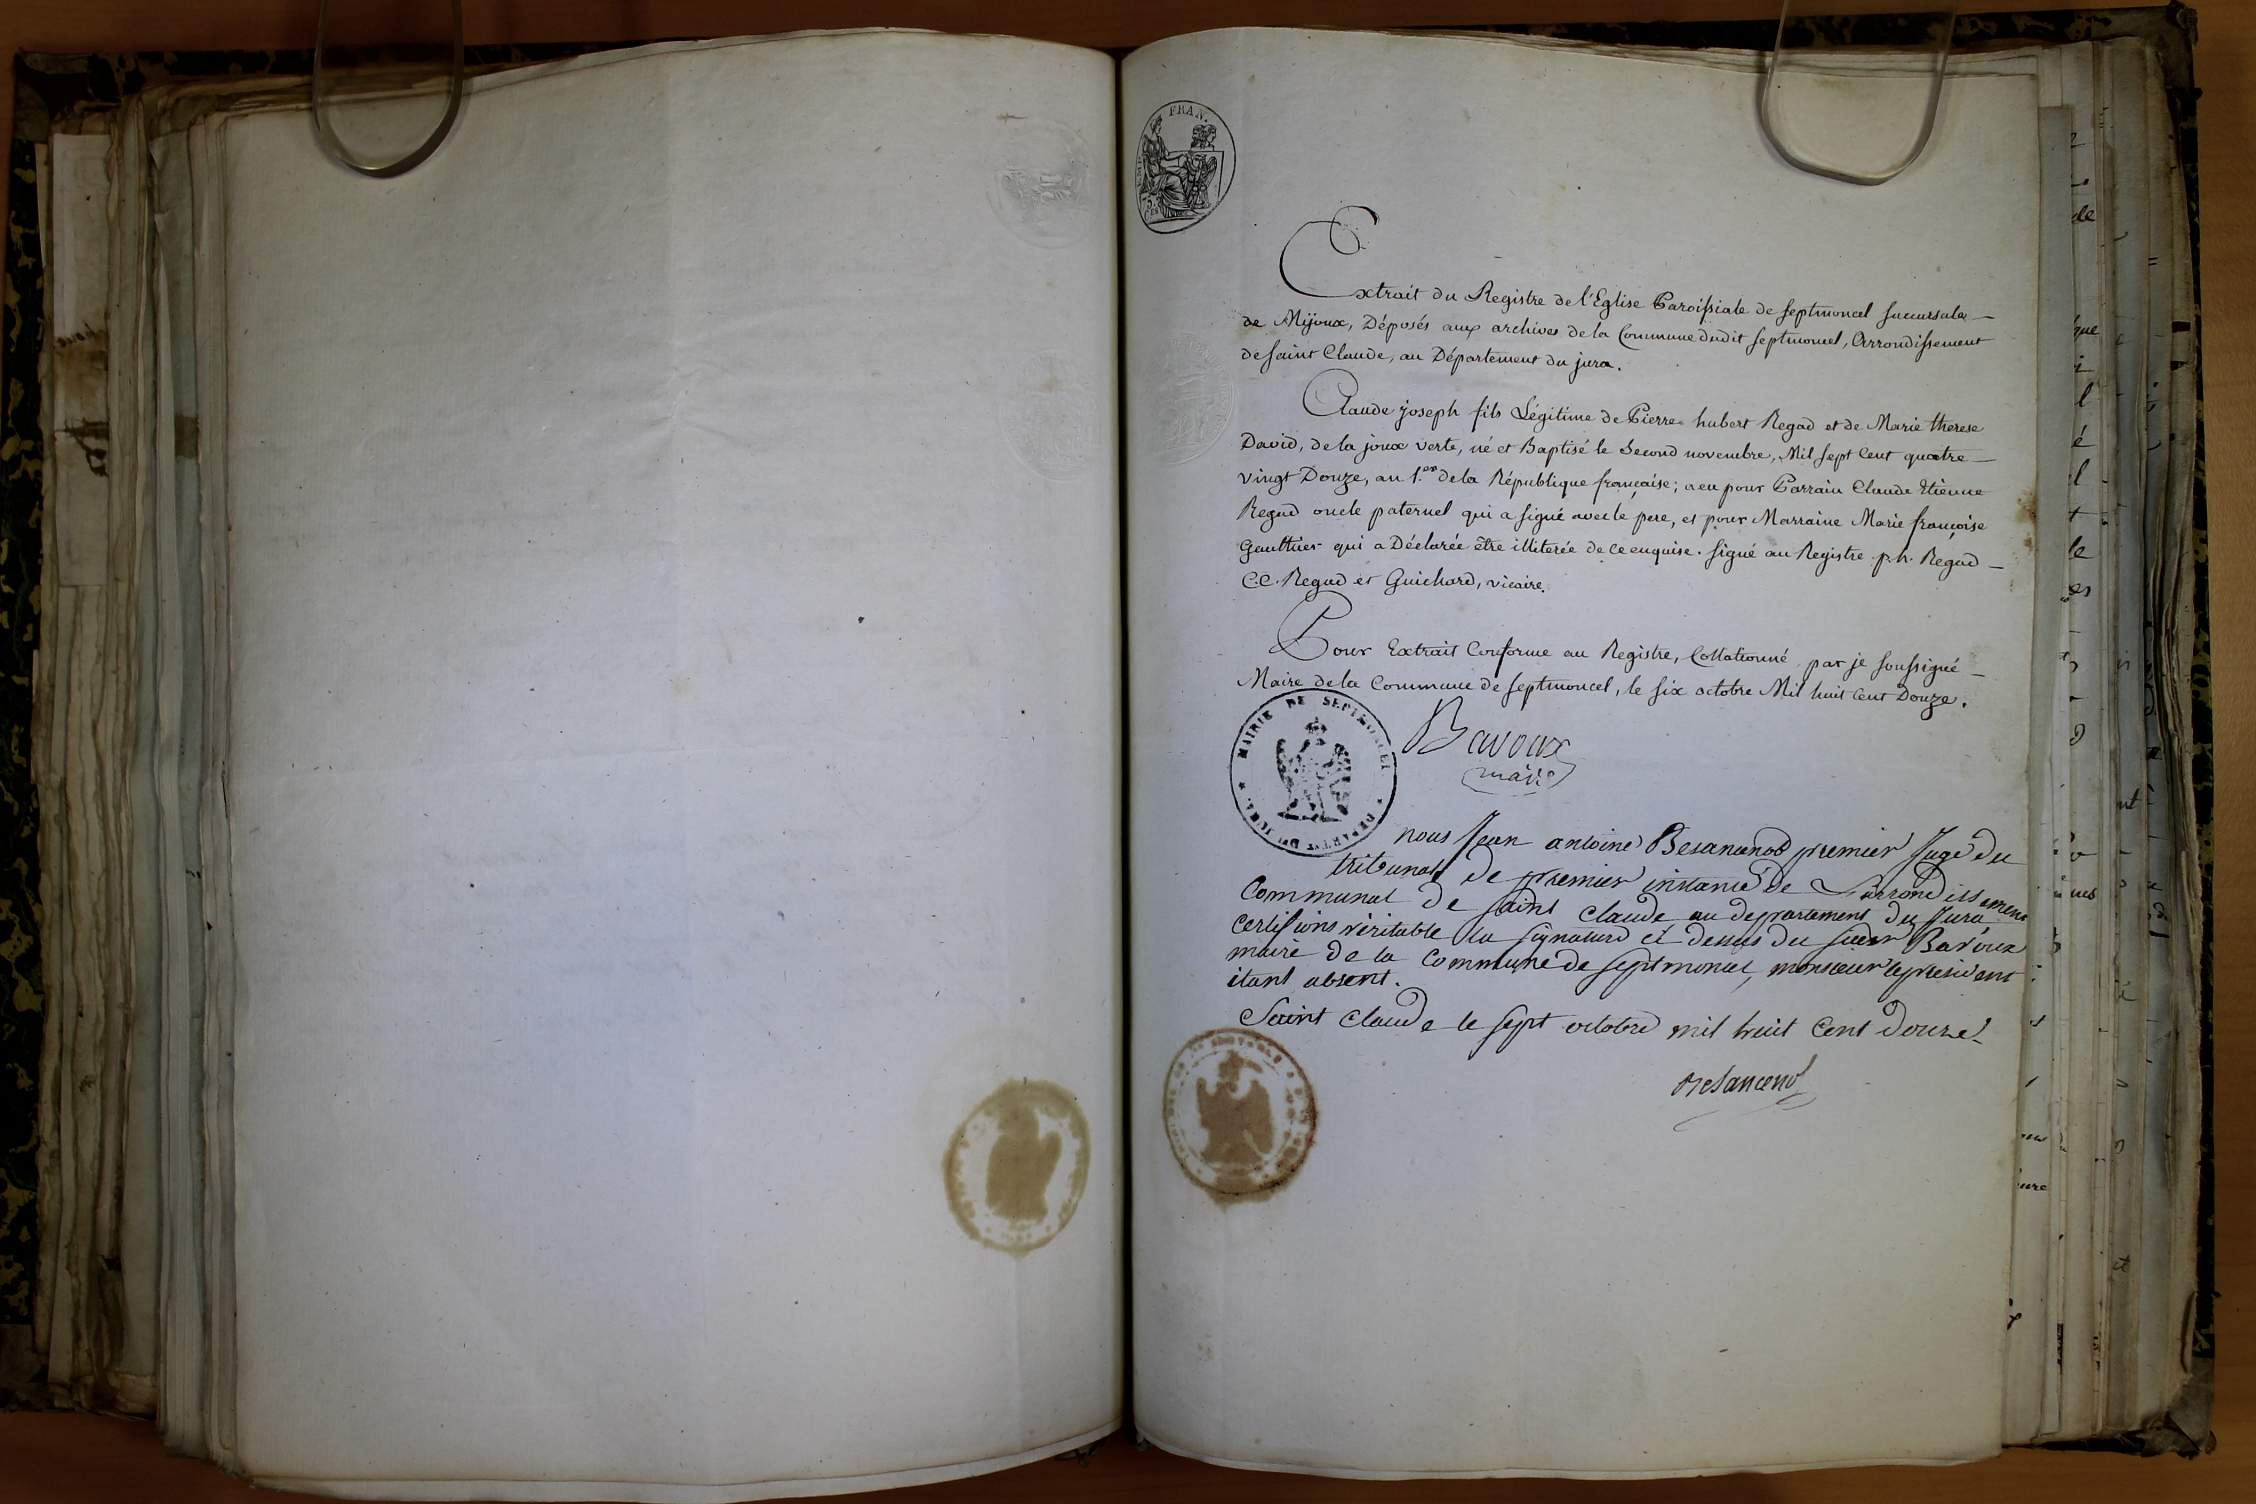 FRAN.
Extrait du Registre de l'Eglise Paroissiale de septmoncel succursale
de Mijoux, Déposés aux archives de la Commune dudit septmoncel, Arrondissement
de saint Claude, au Département du jura.
Claude joseph fils Légitime de Pierre hubert Regad et de Marie therese
David, de la joux verte, né et Baptisé le Second novembre, Mil sept Cent quatre
vingt Douze, an 1.er de la République française; a eu pour Parrain Claude Etienne
Regad oncle paternel qui a signé avec le pere, et pour Marraine Marie françoise
Gauthier qui a Déclarée être illiterée de ce enquise. signé au Registre p. h. Regad
C. E. Regad et Guichard, vicaire.
Pour Extrait Conforme au Registre, Collationné par je soussigné
Maire de la Commune de septmoncel, le six octobre Mil huit Cent Douze.
MAIRIE DE SEPTMONCEL
DEPART. DU JURA
Bavoux
maire
nous Jean antoine Besancenot premier Juge du
tribunal de premier instance de Larrondissement
Communal de saint Claude au departement du Jura
certifions véritable la signature ci dessus du sieur Bavoux
maire de la Commune de septmoncel, monsieur le president
étant absent.
Saint Claude le sept octobre mil huit Cent Douze
Besancenot